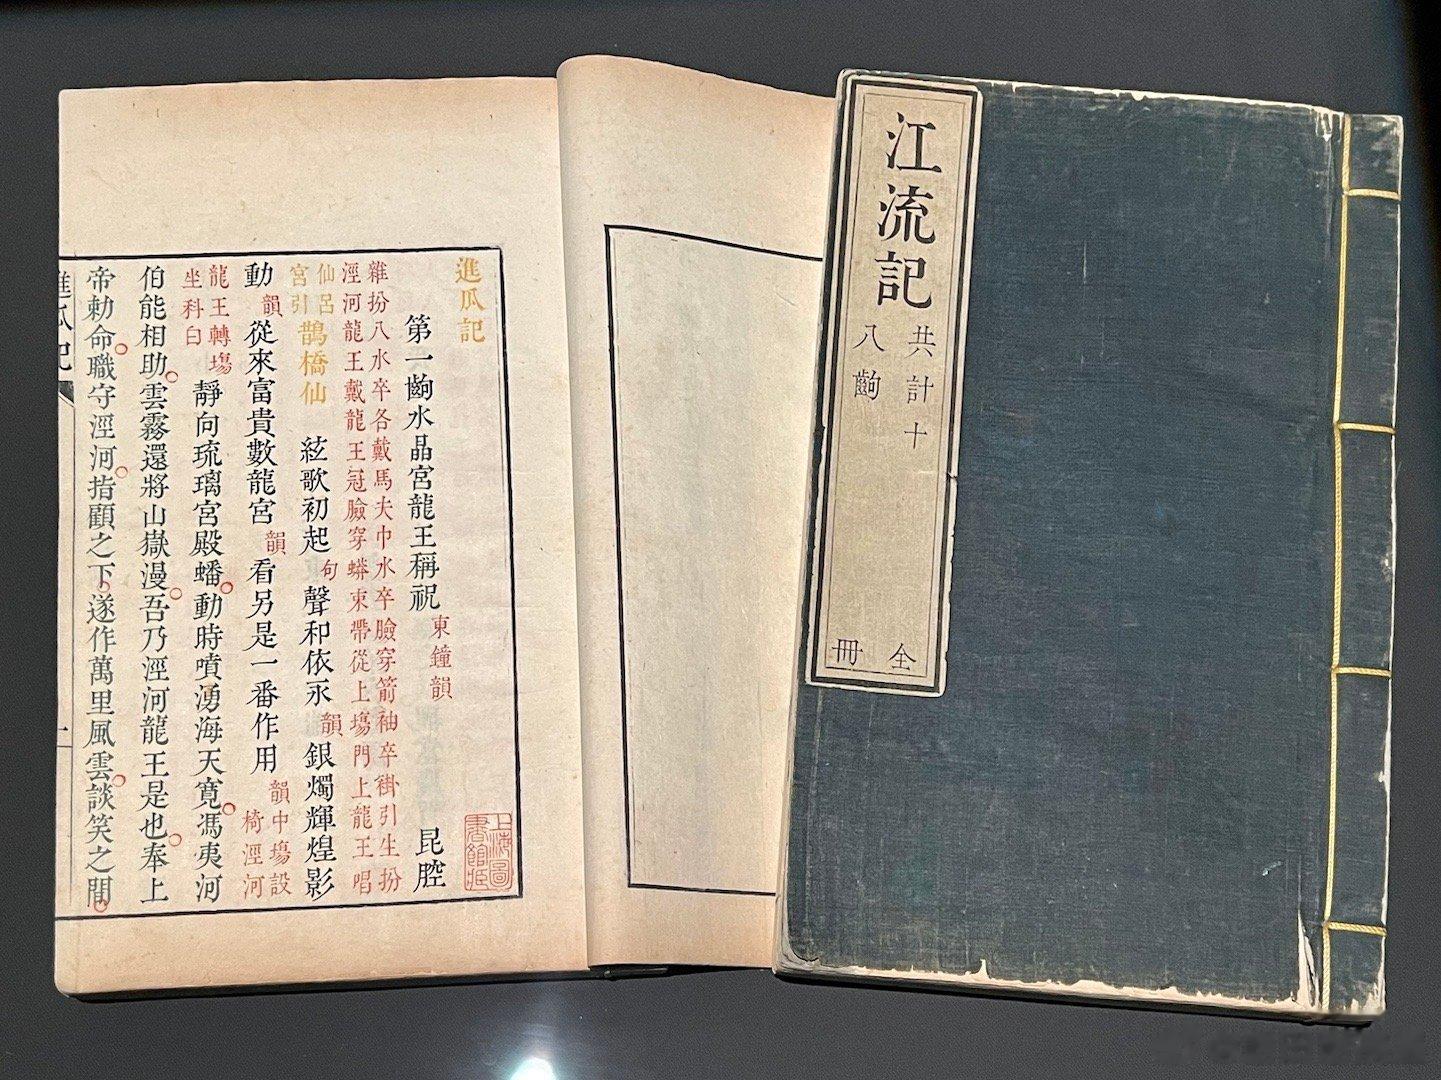 江流記
共計十
八齣
全
冊
進瓜記
第一齣水晶宮龍王稱祝 東鐘韻 昆腔
雜扮八水卒各戴馬夫巾水卒臉穿箭袖卒褂引生扮
涇河龍王戴龍王冠臉穿蟒束帶從上塲門上龍王唱
仙呂
宮引
鵲橋仙 絃歌初起句聲和依永韻銀燭輝煌影
動韻從來富貴數龍宮韻看另是一番作用韻中塲設
椅涇河
龍王轉塲
坐科白
靜向琉璃宮殿蟠動時噴湧海天寬馮夷河
伯能相助雲霧還將山嶽漫吾乃涇河龍王是也奉上
帝勅命職守涇河指顧之下遂作萬里風雲談笑之間
進瓜記
一
上海圖
書館藏